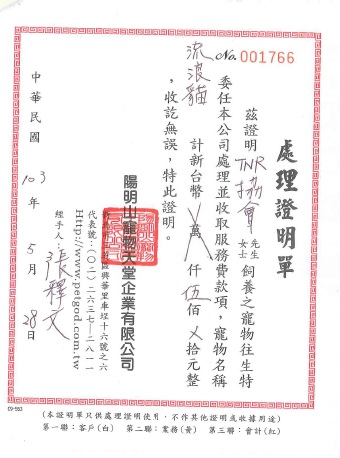 No. 001766
處理證明單
茲證明 TNR協會 先生 女士 飼養之寵物往生特
委任本公司處理並收取服務費款項，寵物名稱
流浪貓 計新台幣 X 萬 X 仟 伍 佰 X 拾元整
，收訖無誤，特此證明。
陽明山寵物天堂企業有限公司
興華里車埕十六號之六
代表號：(〇二)二六三七－二八一一
Http://www.petgod.com.tw
經手人：張釋文
中華民國 103 年 5 月 28 日
09-553
(本證明單只供處理證明使用，不作其他證明或收據用途)
第一聯：客戶(白) 第二聯：業務(黃) 第三聯：會計(紅)